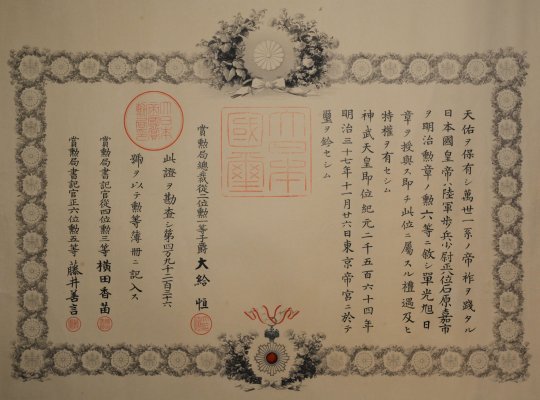 天佑ヲ保有シ萬世一系ノ帝祚ヲ踐タル
日本國皇帝ハ陸軍歩兵少尉正八位石原嘉市
ヲ明治勲章ノ勲六等ニ敘シ單光旭日
章ヲ授與ス即チ此位ニ屬スル禮遇及ヒ
特權ヲ有セシム
神武天皇即位紀元二千五百六十四年
明治三十七年十一月廿六日東京帝宮ニ於テ
璽ヲ鈐セシム
大日本
國璽
賞勲局總裁從二位勲一等子爵 大給 恒
此證ヲ勘査シ第四万九千二百三十六
號ヲ以テ勲等簿冊ニ記入ス
賞勲局書記官從四位勲三等 横田香苗
賞勲局書記官正六位勲五等 藤井善言